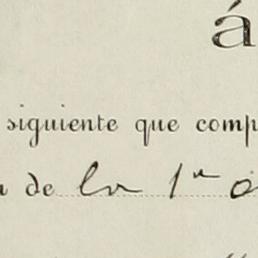 á
siguiente que comp
a de la 1ª